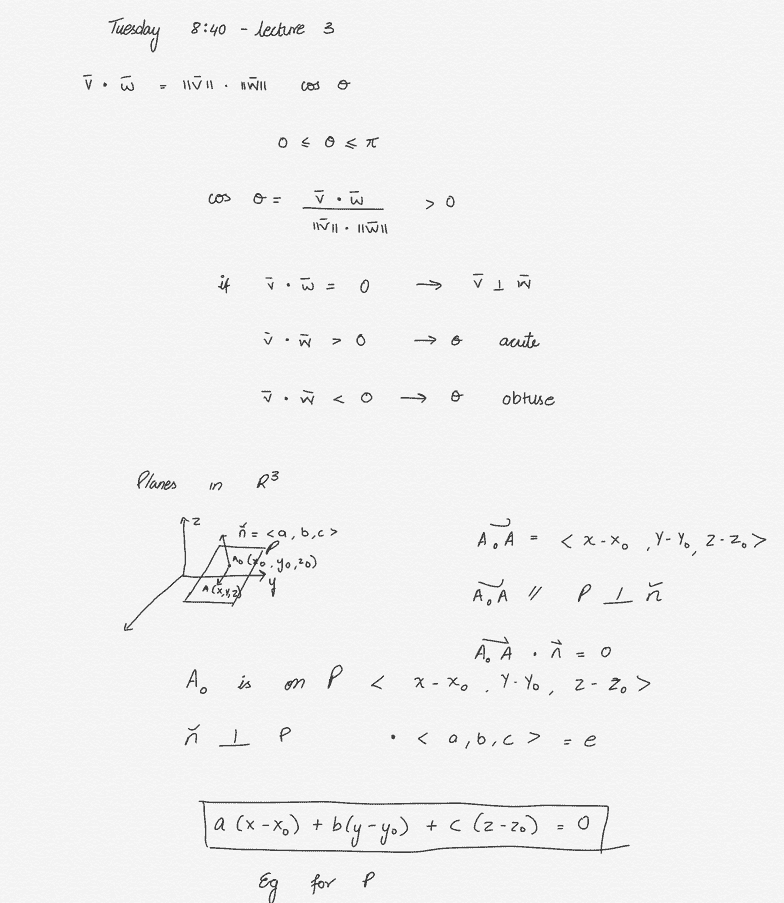 Tuesday 8:40 - lecture 3
v̄ · w̄ = ||v̄|| · ||w̄|| cos θ
0 ≤ θ ≤ π
cos θ = v̄ · w̄ / ||v̄|| · ||w̄|| > 0
if v̄ · w̄ = 0 → v̄ ⊥ w̄
v̄ · w̄ > 0 → θ acute
v̄ · w̄ < 0 → θ obtuse
Planes in R³
z
n⃗ = <a, b, c>
P
A₀(x₀, y₀, z₀)
y
A(x,y,z)
A₀A⃗ = < x-x₀, y-y₀, z-z₀>
A₀A⃗ // P ⊥ n⃗
A₀A⃗ · n⃗ = 0
A₀ is on P < x-x₀, y-y₀, z-z₀>
n⃗ ⊥ P · < a, b, c > = e
a (x-x₀) + b(y-y₀) + c (z-z₀) = 0
Eg for P